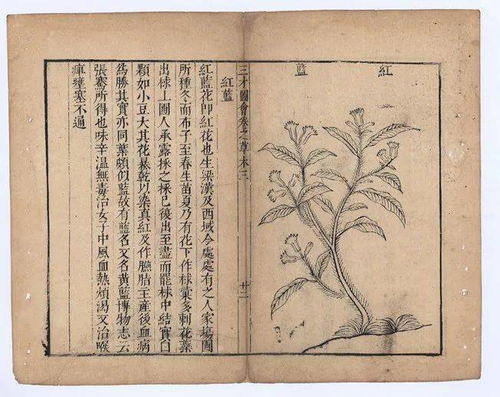 紅藍
三才圖會卷之草木三
廿二
紅藍
紅藍花卽紅花也生梁漢及西域今處處有之人家塲圃
所種冬而布子至春生苗夏乃有花下作梂彙多刺花蘂
出梂上圃人承露採之採已復出至盡而罷梂中結實白
顆如小豆大其花暴乾以染真紅及作臙脂主產後血病
爲勝其實亦同葉頗似藍故有藍名又名黃藍博物志云
張騫所得也味辛溫無毒治女子中風血熱煩渴又治喉
痺壅塞不通